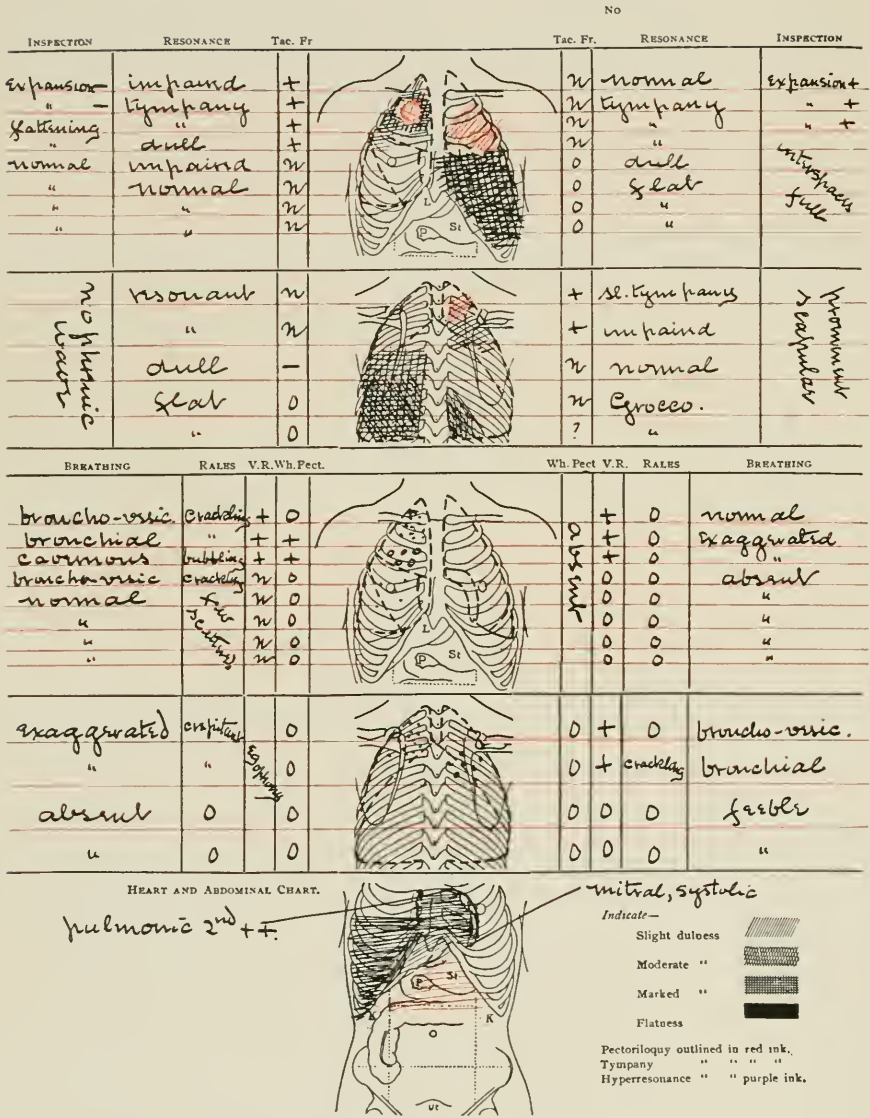 No
INSPECTION RESONANCE Tac. Fr Tac. Fr. RESONANCE INSPECTION
Expansion – impaird + n normal Expansion +
" – tympany + n tympany " +
flattening " + n " " +
" dull + n "
normal impaird n o dull interspaces full
" normal n o flat
" " n o "
" " n o "
L
P St
no phrenic wave resonant n + sl. tympany prominent scapular
" n + impaird
dull – n normal
flat o n Grocco.
" o ? "
BREATHING RALES V.R. Wh. Pect. Wh. Pect V.R. RALES BREATHING
broncho-vesic. crackling + o absent + o normal
bronchial " + + + o Exaggerated
cavernous bubbling + + + o "
broncho-vesic crackling n o o o absent
normal few scattered n o o o "
" n o o o "
" n o o o "
" n o o o "
L
P St
exaggerated crepitant Egophony o o + o broncho-vesic.
" " o o + crackling bronchial
absent o o o o o feeble
" o o o o o "
HEART AND ABDOMINAL CHART.
mitral, systolic
pulmonic 2nd + +.
Indicate—
Slight dulness
Moderate "
Marked "
Flatness
P St
K K
O
Ut
Pectoriloquy outlined in red ink.
Tympany " " " "
Hyperresonance " " purple ink.